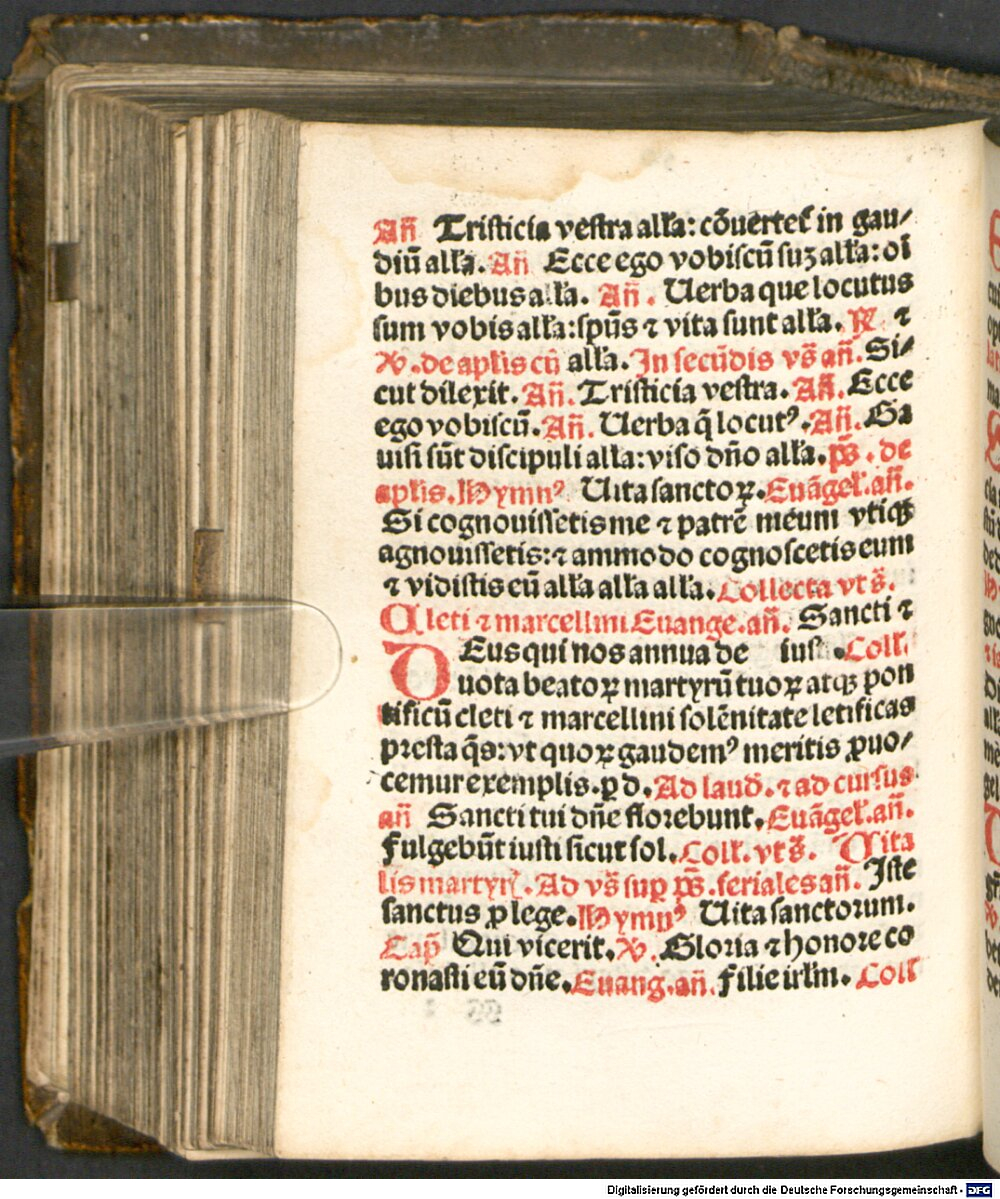 Añ Tristicia vestra alła: cõuertet᷑ in gau⸗
diũ alła. Añ Ecce ego vobiscũ suꝫ alła: oĩ
bus diebus alła. Añ. Uerba que locutus
sum vobis alła: spũs ⁊ vita sunt alła. ℟ ⁊
℣. de aplis cũ alła. In secũdis vs̃ añ. Si⸗
cut dilexit. Añ. Tristicia vestra. Añ. Ecce
ego vobiscũ. Añ. Uerba q̃ locutꝰ. Añ. Ga
uisi sũt discipuli alła: viso dño alła. p̃s. de
aplis. Hymnꝰ Uita sanctoꝝ. Euãgeł. añ.
Si cognouissetis me ⁊ patrẽ meum vtiqꝫ
agnouissetis: ⁊ ammodo cognoscetis eum
⁊ vidistis eũ alła alła alła. Collecta vt s̃.
Cleti ⁊ marcellini Euange. añ. Sancti ⁊
DEus qui nos annua de iusti. Coll.
uota beatoꝝ martyrũ tuoꝝ atqꝫ pon
tificũ cleti ⁊ marcellini solẽnitate letificas
presta q̃s: vt quoꝝ gaudemꝰ meritis ꝓuo⸗
cemur exemplis. ꝑ d. Ad laud̃. ⁊ ad cursus
añ Sancti tui dñe florebunt. Euãgeł. añ.
Fulgebũt iusti sicut sol. Coll. vt s̃. Uita
lis martyr̃. Ad vs̃ sup p̃s. feriales añ. Iste
sanctus ꝓ lege. Hymnꝰ Uita sanctorum.
Cap̃ Qui vicerit. ℣. Gloria ⁊ honore co
ronasti eũ dñe. Euang. añ. Filie irłm. Coll
Digitalisierung gefördert durch die Deutsche Forschungsgemeinschaft - DFG